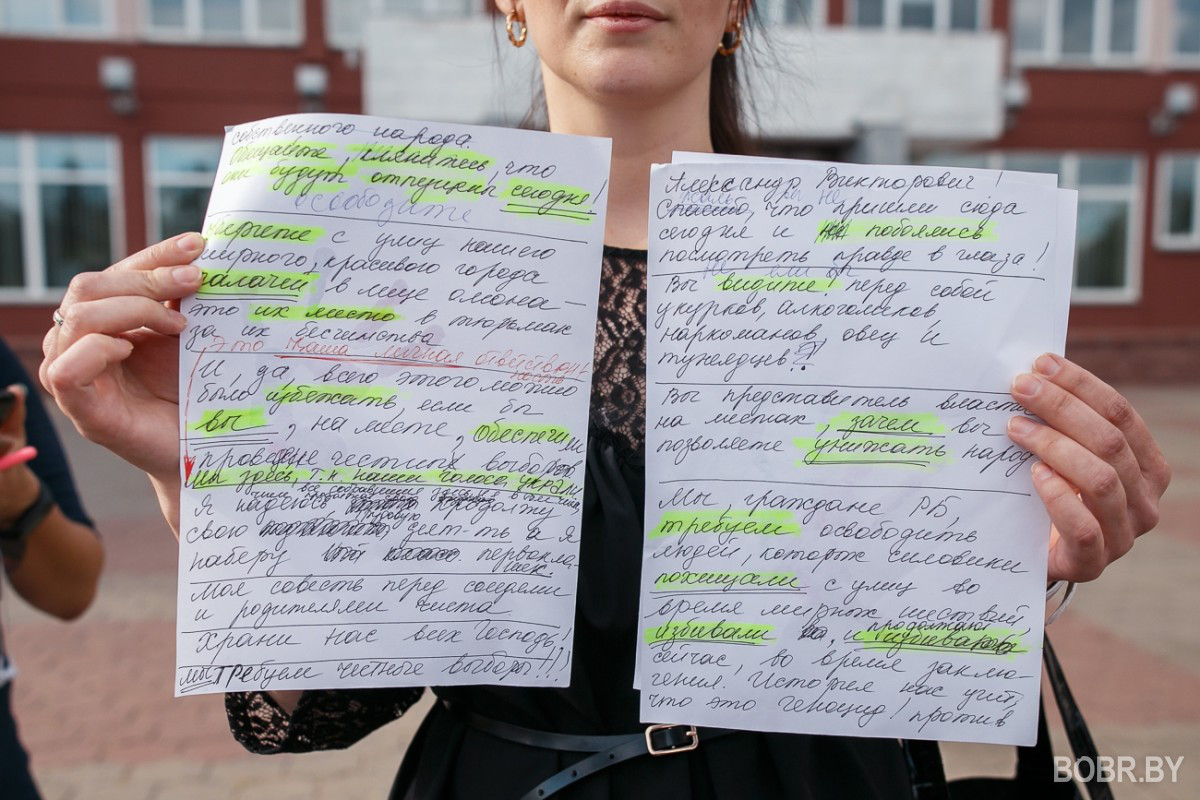 собственного народа.
Обещайте, клянитесь, что
они будут отпущены сегодня!
Освободите
с улиц нашего
мирного, красивого города
палачей в лице омона —
это их место в тюрьмах
за их бесчинства
Это Ваша личная ответствен
ность
И, да, всего этого можно
было избежать, если бы
вы, на месте, обеспечили
проведение честных выборов
мы здесь, т.к. наши голоса украли
Я надеюсь продолжу
свою деят-ть а я
наберу первокла-
шек.
моя совесть перед соседями
и родителями чиста
Храни нас всех Господь!
мы требуем честные выборы!!!
Александр Викторович!
Спасибо, что пришли сюда
сегодня и не побоялись
посмотреть правде в глаза!
Вы видите перед собой
укурков, алкоголиков,
наркоманов, овец и
тунеядцев?!
Вы представитель власти
на местах зачем вы
позволяете унижать народ
Мы, граждане РБ,
требуем освободить
людей, которых силовики
похищали с улиц во
время мирных шествий,
продолжают
избивали и избивают
сейчас, во время заклю-
чения. История нас учит,
что это геноцид! против
BOBR.BY